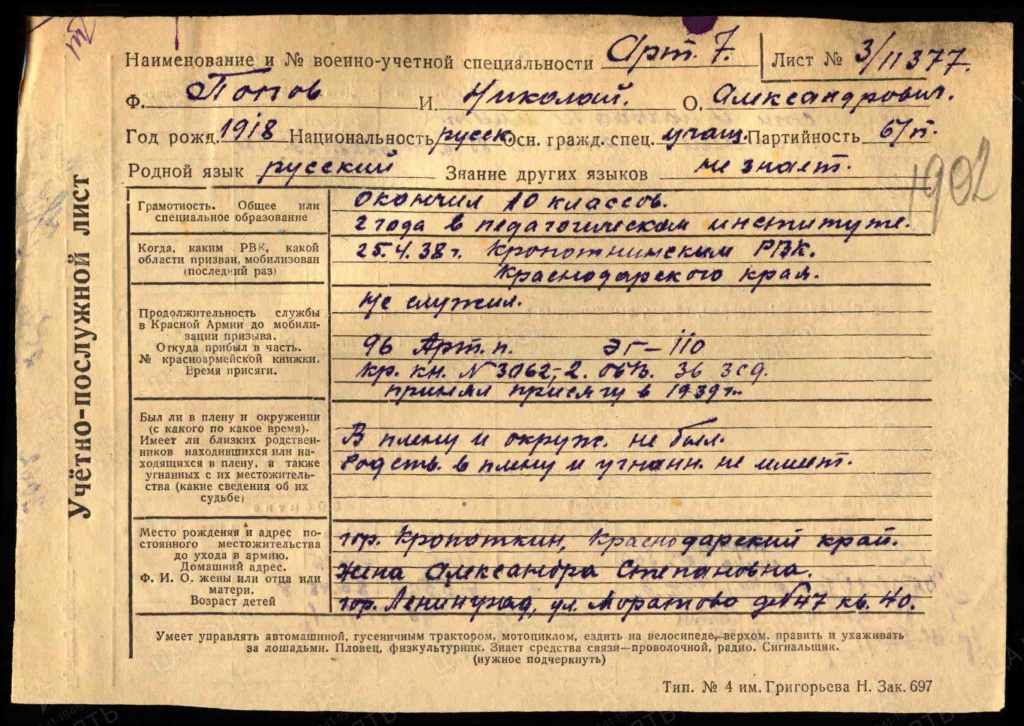 Наименование и № военно-учетной специальности Арт. 7. Лист № 3/11377.
Ф. Попов И. Николай. О. Александрович.
Год рожд. 1918 Национальность русск Осн. гражд. спец. учащ. Партийность б/п.
Родной язык русский Знание других языков не знает.
1902
Учётно-послужной лист
Грамотность. Общее или
специальное образование
Окончил 10 классов.
2 года в педагогическом институте.
Когда, каким РВК, какой
области призван, мобилизован
(последний раз)
25.4.38 г. Кропоткинским РВК.
Краснодарского края.
Продолжительность службы
в Красной Армии до мобили-
зации призыва.
Откуда прибыл в часть.
№ красноармейской книжки.
Время присяги.
Не служил.
96 Арт. п. ЭГ-110
кр. кн. № 3062,-2. обв. 36 зсд.
принял присягу в 1939 г.
Был ли в плену и окружении
(с какого по какое время).
Имеет ли близких родствен-
ников находившихся или на-
ходящихся в плену, а также
угнанных с их местожитель-
ства (какие сведения об их
судьбе)
В плену и окруж. не был.
Родств. в плену и угнанн. не имеет.
Место рождения и адрес по-
стоянного местожительства
до ухода в армию.
Домашний адрес.
Ф. И. О. жены или отца или
матери.
Возраст детей
гор. Кропоткин, Краснодарский край.
Жена Александра Степановна.
гор. Ленинград, ул. Моратово д№47 кв. 40.
Умеет управлять автомашиной, гусеничным трактором, мотоциклом, ездить на велосипеде, верхом, править и ухаживать
за лошадьми. Пловец, физкультурник. Знает средства связи—проволочной, радио. Сигнальщик.
(нужное подчеркнуть)
Тип. № 4 им. Григорьева Н. Зак. 697